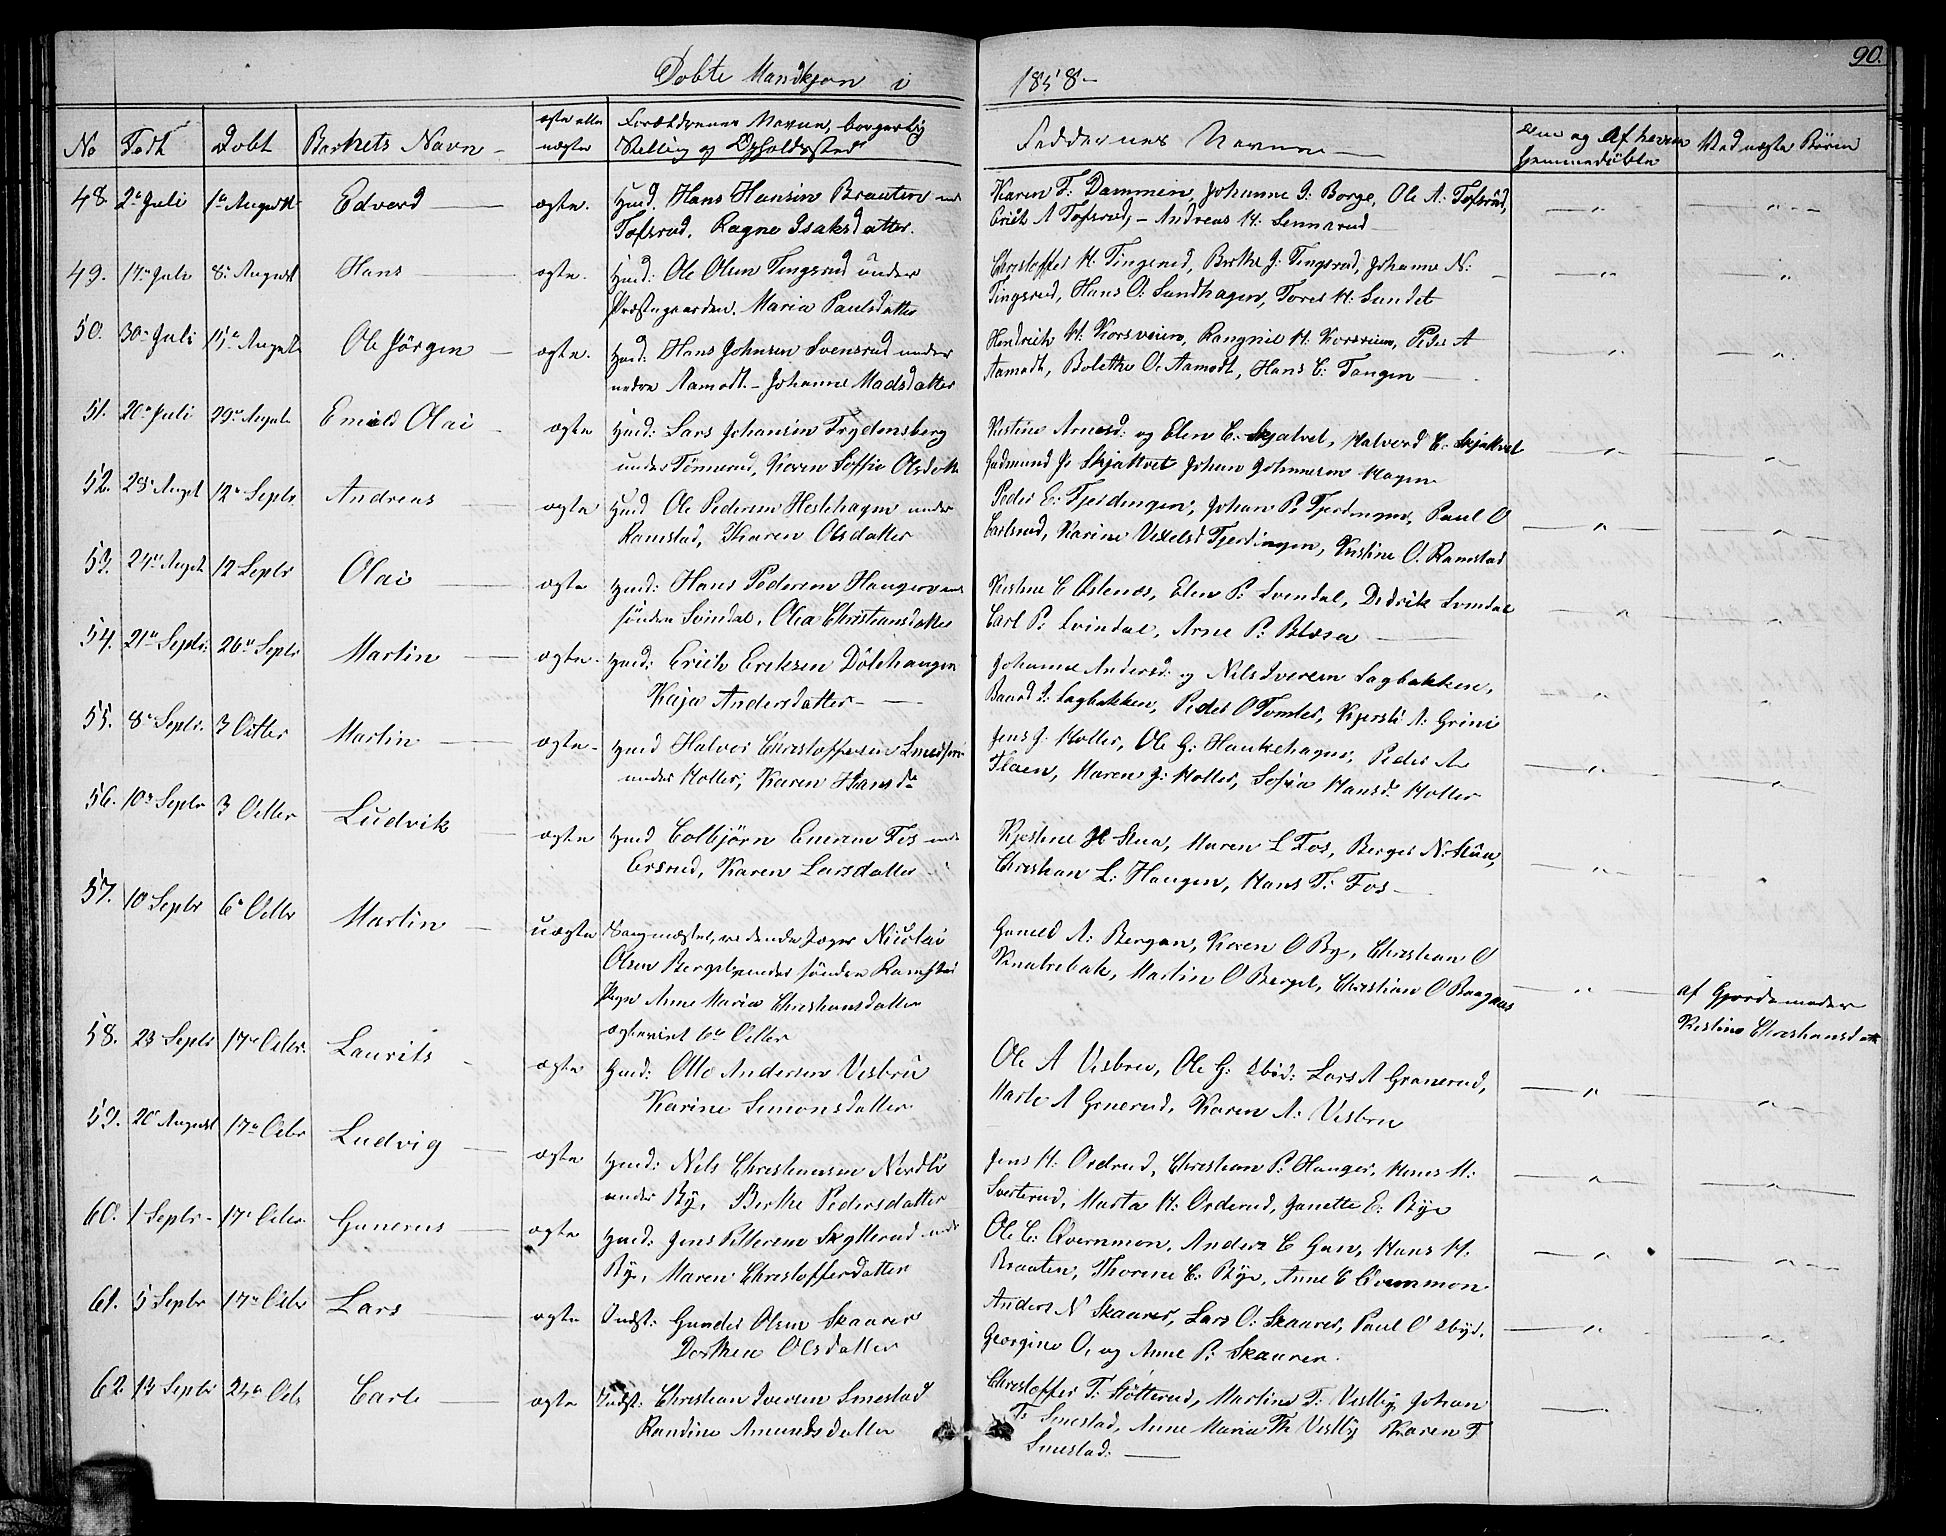 Døbte Mandkjøn i 1858-
90.
No Født Døbt Barnets Navn ægte eller uægte Forældrenes Navne, borgerlig Stilling og Opholdssted Faddernes Navne Ved uægte Børn
48. 2de Juli 1te August Edvard ægte. Hmd. Hans Hansen Braaten und
Tofsrud, Ragne Isaksdatter.
Karen T: Dammen, Johanne J: Borge, Ole A: Tofsrud,
Erik A Tofsrud, - Andreas H: Sennerud
49. 17de Juli 8de August Hans ægte. Hmd: Ole Olsen Tingsrud under
Præstegaarden. Maria Paulsdatter
Christoffer H: Tingsrud, Berthe J: Tingsrud, Johanne N:
Tingsrud, Hans O: Sundhagen, Tores H: Sundet
50. 30te Juli 15de August Ole Jørgen ægte. Hmd: Hans Johnsen Svensrud under
nedre Aamodt - Johanne Madsdatter
Hendrick H: Korsveien, Rangnil H: Korsveien, Peder A
Aamodt, Bolethe O: Aamodt, Hans E: Tangen
51. 20de Juli 29de August Emild Olai ægte Hmd: Lars Johansen Frydensberg
under Tønnerud, Karen Soffie Olsdatter
Kistine Arnesd: og Elen E: Skjatvet, Halvord E: Skjattvet
Gudmund P: Skjattvet Johan Johannesen Hagen
52. 28de August 12te Septbr Andreas ægte Hmd Ole Pedersen Hestehagen under
Ramstad, Karen Olsdatter
Peder E: Fjerdingen, Johan P: Fjerdingen, Paul O
Carlsrud, Karine Vexelsd Fjerdingen, Kistine O: Ramstad
53. 24de August 12 Septbr Olai ægte Hmd: Hans Pedersen Haugen und
søndre Svindal, Olia Christiansdatter
Kistine C Østenes, Elen P: Svendal, Dedrik Svindal
Carl P: Svindal, Arne P: Blæsa
54. 21de Septbr: 26de Septbr Martin ægte Hmd: Erich Eriksen Dølehaugen
Kaja Andersdatter
Johanne Andersd: og Nils Iversen Sagbakken,
Baard J: Sagbakken, Peder O Tomter, Kjersti A: Grini
55. 8de Septbr. 3 Octbr Martin ægte Hmd Halvor Christoffersen
under Holter, Karen Hansd
Jens J: Holter, Ole G: Haukehagen, Peder A
Flaen, Maren J: Holter, Sofia Hansd. Holter
56. 10de Septbr 3 Octbr Ludvik ægte Hmd Colbjørn Enersen Fos und
Ersrud, Karen Larsdatter
Kjestine H Stua, Maren L Fos, Berger N: Stua,
Christian L: Haugen, Hans T: Fos
57. 10 Septbr 6te Octbr Martin uægte Nicolai
Olsen Bergeby under søndre Ramstad
Pige Anne Maria Christiansdatter
6te Octbr
Guneld A: Bergan, Karen O By, Christian O
Knatrebak, Martin O Berget, Christian O Baagaas
af Gjordemoder
Kistine Christiansdatter
58. 23 Septbr 17de Octbr. Laurits ægte Hmd: Otto Andersen Visbru
Karine Simonsdatter
Ole A Visbru, Ole G: Lars A Granerud,
Marte A Granerud, Karen A: Visbru
59. 20 August 17de Octbr Ludvig ægte Hmd: Nils Christiansen Nordli
under By, Berthe Pedersdatter
Jens H: Ordrud, Christian P: Hauger, Hans H:
Svesterud, Marta H: Orderud, Janette E: Bye
60. 1 Septbr 17de Octbr. Gunerus ægte Hmd: Jens Pettersen Skytterud und
By, Maren Christoffersdatter
Ole C: Qvernmon, Anders C Gan, Hans H.
Braaten, Thorine C: Bye, Anne C Qvernmon
61. 5 Septbr 17de Octbr Lars ægte Indst: Gunder Olsen Skaarer
Dorthea Olsdatter
Anders N Skaarer, Lars O: Skaarer, Paul O
Georgine O, og Anne P: Skaarer.
62. 13 Septbr 24de Octb Carl ægte Indst: Christian Iversen Smestad
Randine Amundsdatter
Christoffer T: Støtterud, Martine T: Vestby, Johan
T: Smestad, Anne Maria Th Vestby Karen T
Smestad: